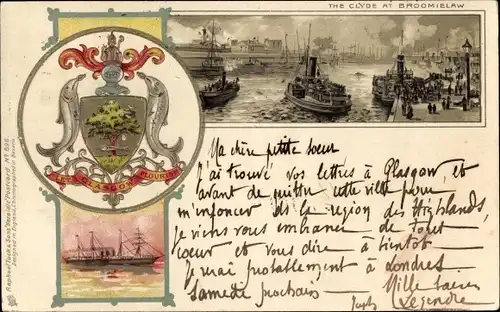 THE CLYDE AT BROOMIELAW
LET GLASGOW FLOURISH
Raphael Tuck & Sons' "Heraldic" Postcard Nº 695
Ma chère petite soeur
J'ai trouvé vos lettres à Glasgow, et
avant de quitter cette ville pour
m'enfoncer ds la region des Highlands,
je viens vous embrasser de tout
coeur et vous dire à bientôt
Je serai probablement à Londres
Samedi prochain
Mille baisers
Legendre